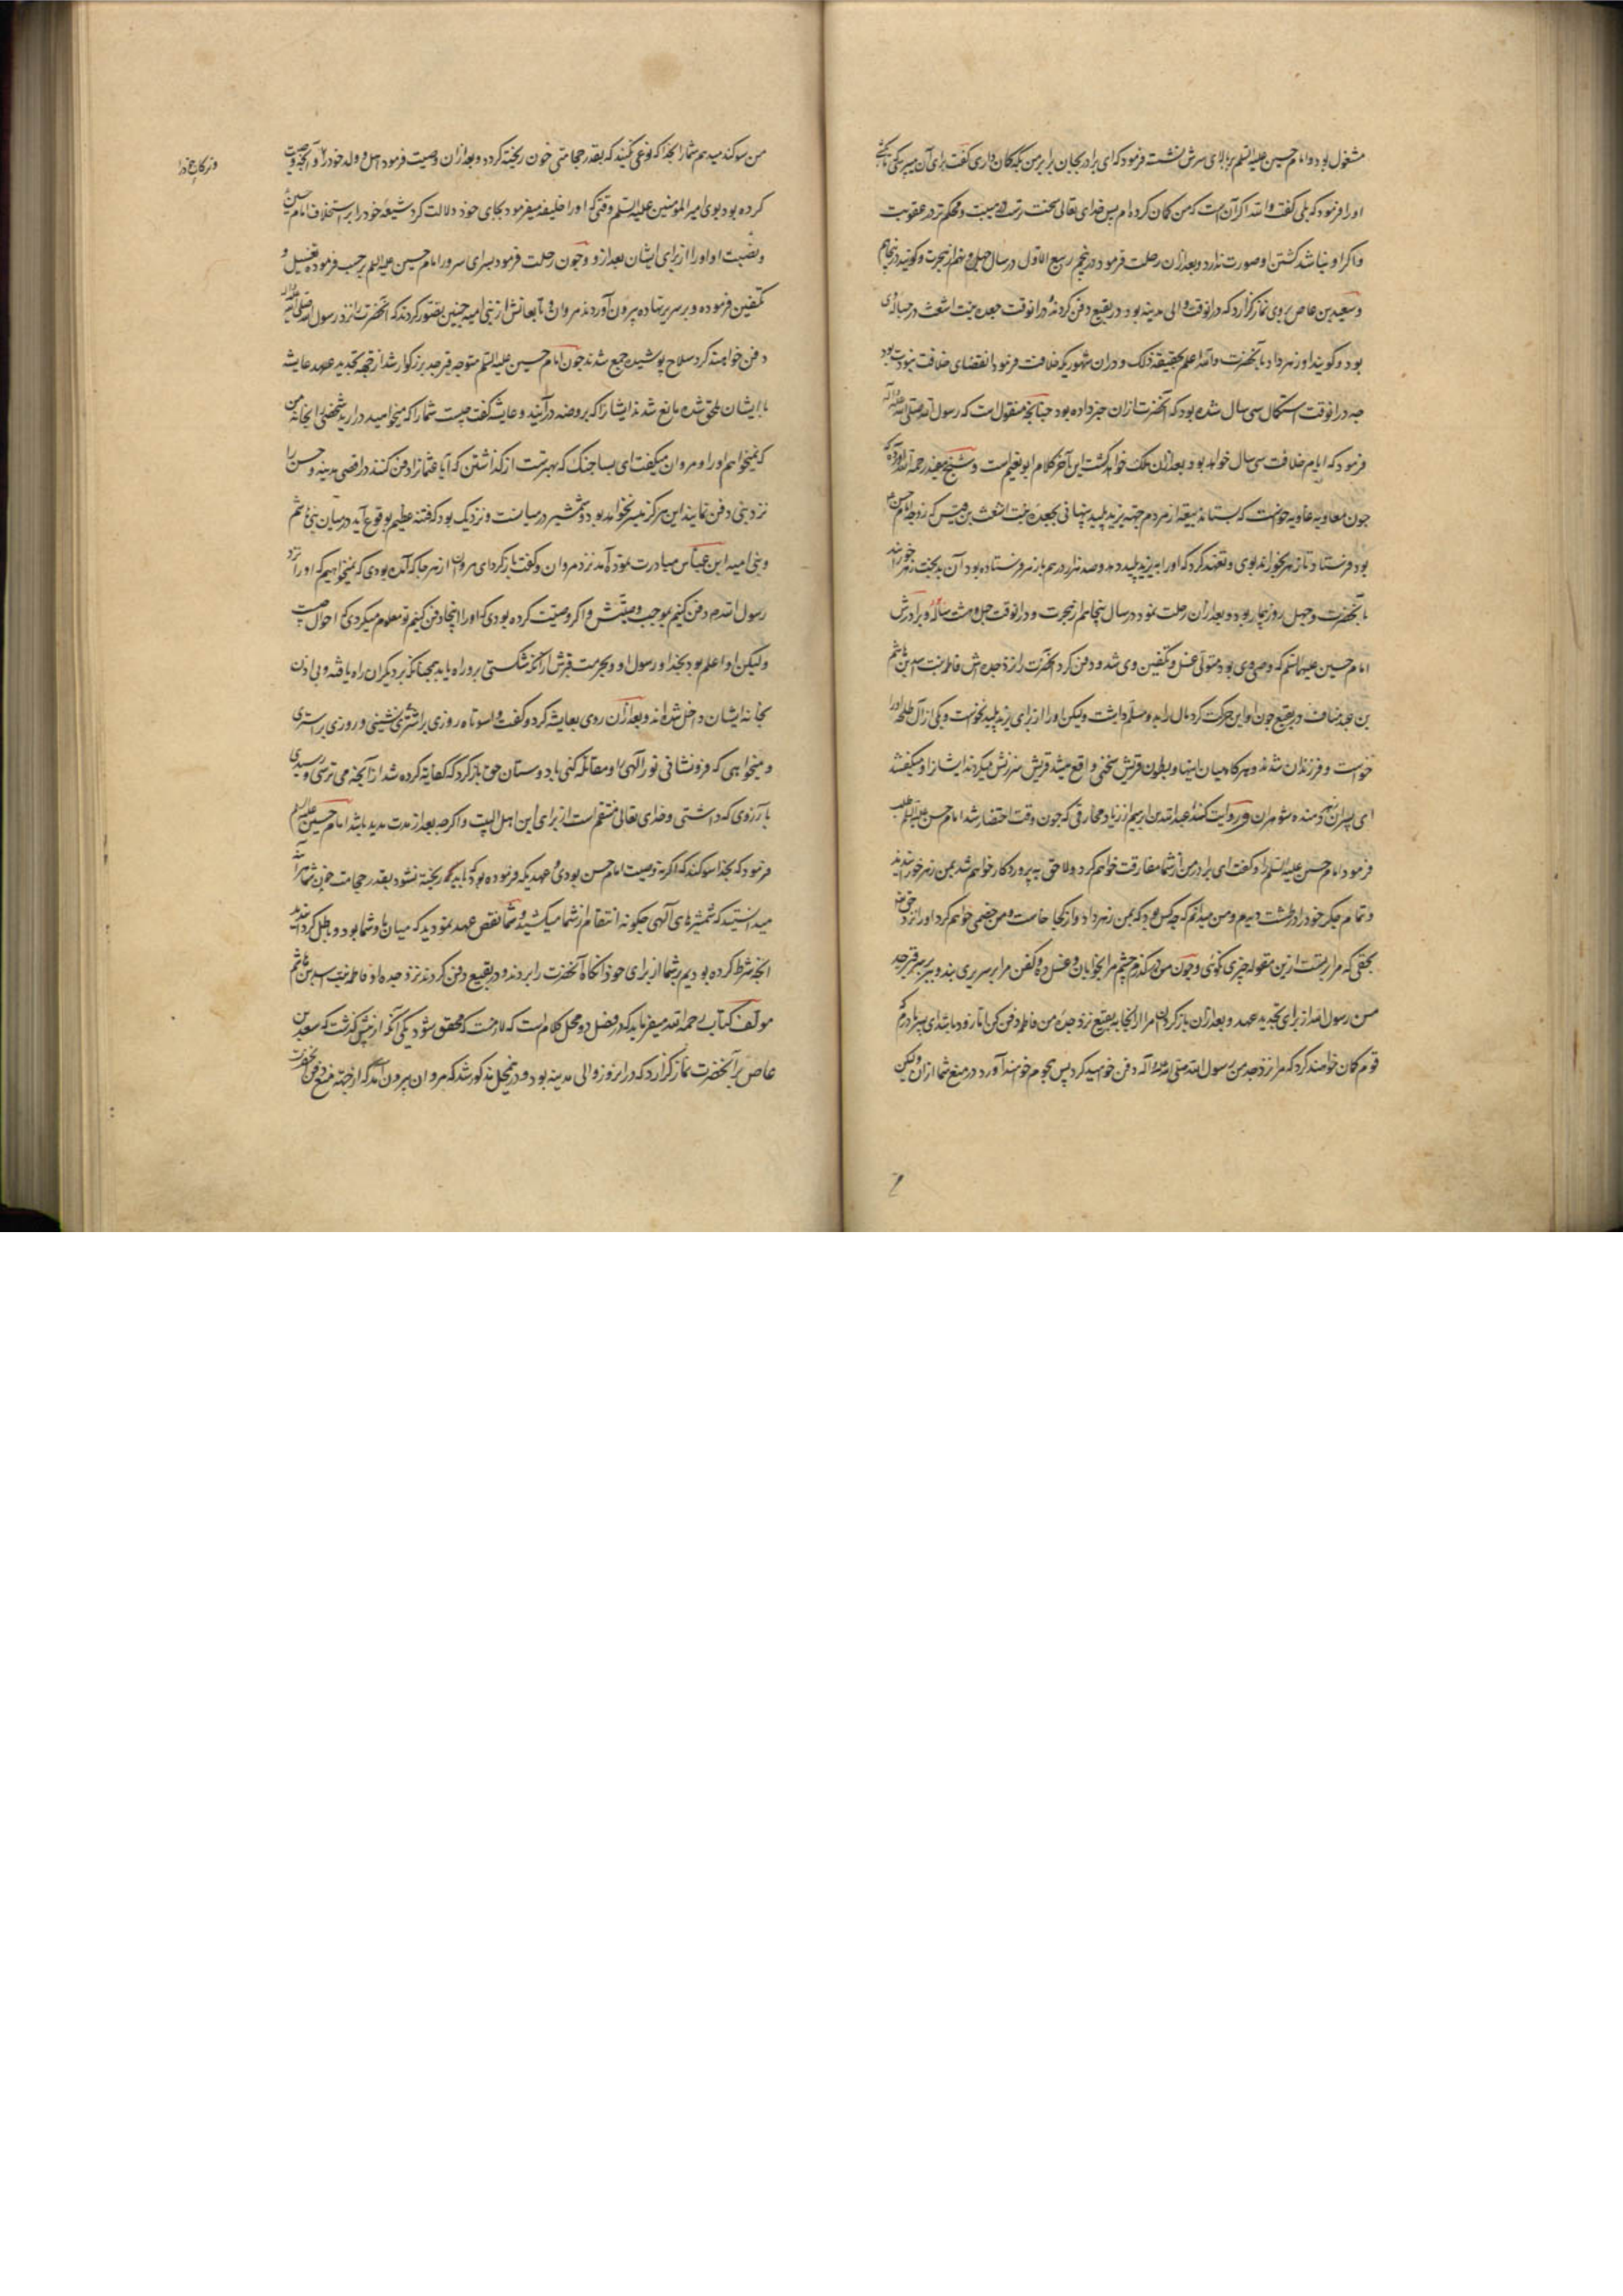 مشغول بود و امام حسین علیه السلم بر بالای سرش نشست فرمود که ای برادر بجان برابر من بکه کمان داری گفت برای آن میپرسی که تا بکشی
او را فرمود که بلی گفت والله اکر آن است که من کمان کرده‌ام پس خدای تعالی سخت‌ترست در هیبت و محکم‌تر در عقوبت
و اکر او نباشد کشتن او صورت ندارد و بعد ازان رحلت فرمود در پنجم ربیع الاول در سال چهل و نهم از هجرت و کویند در پنجاهم
و سعید بن عاص بروی نماز کزارد که درانوقت والی مدینه بود و در بقیع دفن کردند و درانوقت جعده بنت اشعث در حباله وی
بود و کویند او زهر داد بآنحضرت والله اعلم بحقیقة ذلک و دران شهور یکه خلافت فرمود انقضای خلافت نبوت بود
چه درانوقت استکمال سی سال شده بود که آنحضرت ازان خبر داده بود چنانچه منقول است که رسول الله صلی الله علیه و آله
فرمود که ایام خلافت سی سال خواهد بود و بعد ازان ملک خواهد کشت این آخر کلام ابو نعیم است و شیخ مفید رحمه الله آورده که
چون معاویه غاویه خواست که بستاند بیعة از مردم جهة یزید پلید پنهانی بجعده بنت اشعث بن قیس که زوجه امام حسن
بود فرستاد تا زهر بخوراند بوی و تعهد کرد که او را به یزید پلید دهد و صد هزار درهم باز هر فرستاده بود آن بدبخت زهر خوراند
بآنحضرت و چهل روز بیمار بود و بعد ازان رحلت نمود در سال پنجاهم از هجرت و درانوقت چهل و هشت ساله و برادرش
امام حسین علیهما السلم که وصی وی بود متولی غسل و تکفین وی شد و دفن کرد آنحضرت را نزد جده‌اش فاطمه بنت اسد بن هاشم
بن عبد مناف در بقیع چون او این حرکت کرد مال را بدو مسلم داشت ولیکن او را از برای یزید پلید نخواست و یکی از آل طلحه او را
خواست و فرزندان شدند و هرکاه میان اینها و بطون قریش سخنی واقع میشد قریش سرزنش میکردند ایشانرا و میکفتند
ای پسران زهر دهنده شوهران و روایت کند عبد الله بن ابرهیم از زیاد مخارقی که چون وقت احتضار شد امام حسن علیه السلم طلب
فرمود امام حسین علیه السلم را و گفت ای برادر من از شما مفارقت خواهم کرد و لاحق به پروردکار خواهم شد بمن زهر خورانیدند
و تمام جکر خود را در طشت دیدم و من میدانم که چه کس بود که بمن زهر داد و از کجا خاست و من خصمی خواهم کرد او را نزد حق
بحقی که مرا بر تست ازین مقوله چیزی نکوئی و چون من درکذرم چشم مرا بخوابان و غسل ده و کفن مرا بر سریری بنه و ببر بر سر قبر جد
من رسول الله از برای تجدید عهد و بعد ازان بازکردان مرا ازانجا به بقیع نزد جده من فاطمه و دفن کن انجا و زود باشد ای پسر مادرم که
قوم کمان خواهند کرد که مرا نزد جد من رسول الله صلی الله علیه و آله دفن خواهید کرد پس هجوم خواهند آورد در منع شما ازان ولیکن
من سوکند میدهم شما را بخدا که نوعی نکنید که بقدر حجامتی خون ریخته کردد و بعد ازان وصیت فرمود اهل و ولد خود را و آنچه وصیت
کرده بود بوی امیر المؤمنین علیه السلم وقتی که او را خلیفه میفرمود بجای خود دلالت کرد شیعه خود را بر استخلاف امام حسین
و نصبت او او را از برای ایشان بعد ازو و چون رحلت فرمود بسرای سرور امام حسین علیه السلم برحسب فرموده تغسیل و
تکفین فرموده و بر سریر نهاده بیرون آوردند مروان و تابعانش از بنی امیه چنین تصور کردند که آنحضرت را نزد رسول الله صلی الله علیه و آله
دفن خواهند کرد سلاح پوشیده جمع شدند چون امام حسین علیه السلم متوجه قبر جد بزرکوار شد از جهة تجدید عهد عایشه
بایشان ملحق شده مانع شدند ایشانرا که بروضه درآیند و عایشه گفت چیست شما را که میخواهید درآرید شخصی را بخانه من
که نمیخواهم او را و مروان میکفت ای بسا جنک که بهترست از کذاشتن که آیا عثمان را دفن کنند در اقصی مدینه و حسن را
نزد نبی دفن نمایند این هرکز میسر نخواهد بود و شمشیر در میانست و نزدیک بود که فتنه عظیم بوقوع آید در میان بنی هاشم
و بنی امیه ابن عباس مبادرت نموده آمد نزد مروان و گفت بازکرد ای مروان از هرجا که آمده بودی که نمیخواهیم که او را نزد
رسول الله دفن کنیم بموجب وصیتش و اکر وصیت کرده بودی که او را اینجا دفن کنیم تو معلوم میکردی که احوال چیست
ولیکن او اعلم بود بخدا و رسول او و بحرمت قبرش ازانکه شکستی برو راه یابد همچنانکه بر دیکران راه یافته و بی اذن
بخانه ایشان داخل شده‌اند و بعد ازان روی بعایشه کرد و گفت واسوتاه روزی بر اشتری نشینی و روزی بر استری
و میخواهی که فرونشانی نور آلهی را و مقاتله کنی با دوستان حق بازکرد که کفایة کرده شد از آنچه می ترسی و رسیدی
بآرزوی که داشتی و خدای تعالی منتقم است از برای این اهل البیت و اکرچه بعد از مدت مدید باشد امام حسین علیه السلم
فرمود که بخدا سوکند که اکر نه وصیت امام حسن بودی و عهدیکه فرموده بود که باید که ریخته نشود بقدر حجامت خون شما هر آینه
میدانستید که شمشیرهای آلهی چکونه انتقام از شما میکشید و شما نقض عهد نمودید که میان ما و شما بود و باطل کردانیدید
آنچه شرط کرده بودیم بر شما از برای خود آنکاه آنحضرت را بردند و در بقیع دفن کردند نزد جده او فاطمه بنت اسد بن هاشم
مولف کتاب رحمه الله میفرماید که درین فصل دو محل کلام است که لازمست که محقق شود یکی آنکه از پیش کذشت که سعید بن
عاص بر آنحضرت نماز کزارد که دران روز والی مدینه بود و درین محل مذکور شد که مروان بیرون آمد که از جهة منع دفن آنحضرت